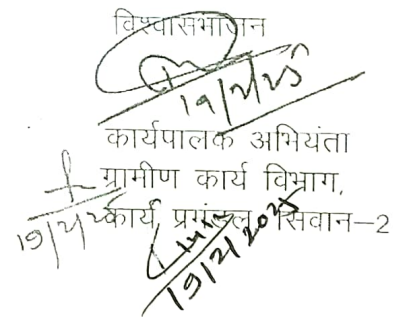 विश्वासभाजन
19/2/25
कार्यपालक अभियंता
ग्रामीण कार्य विभाग,
कार्य प्रमंडल, सिवान–2
19/2/25
19/2/2025